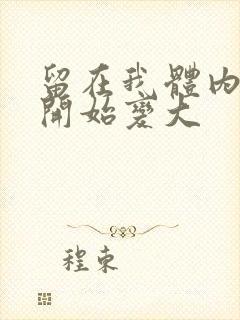 留在我體內
開始變大
程東